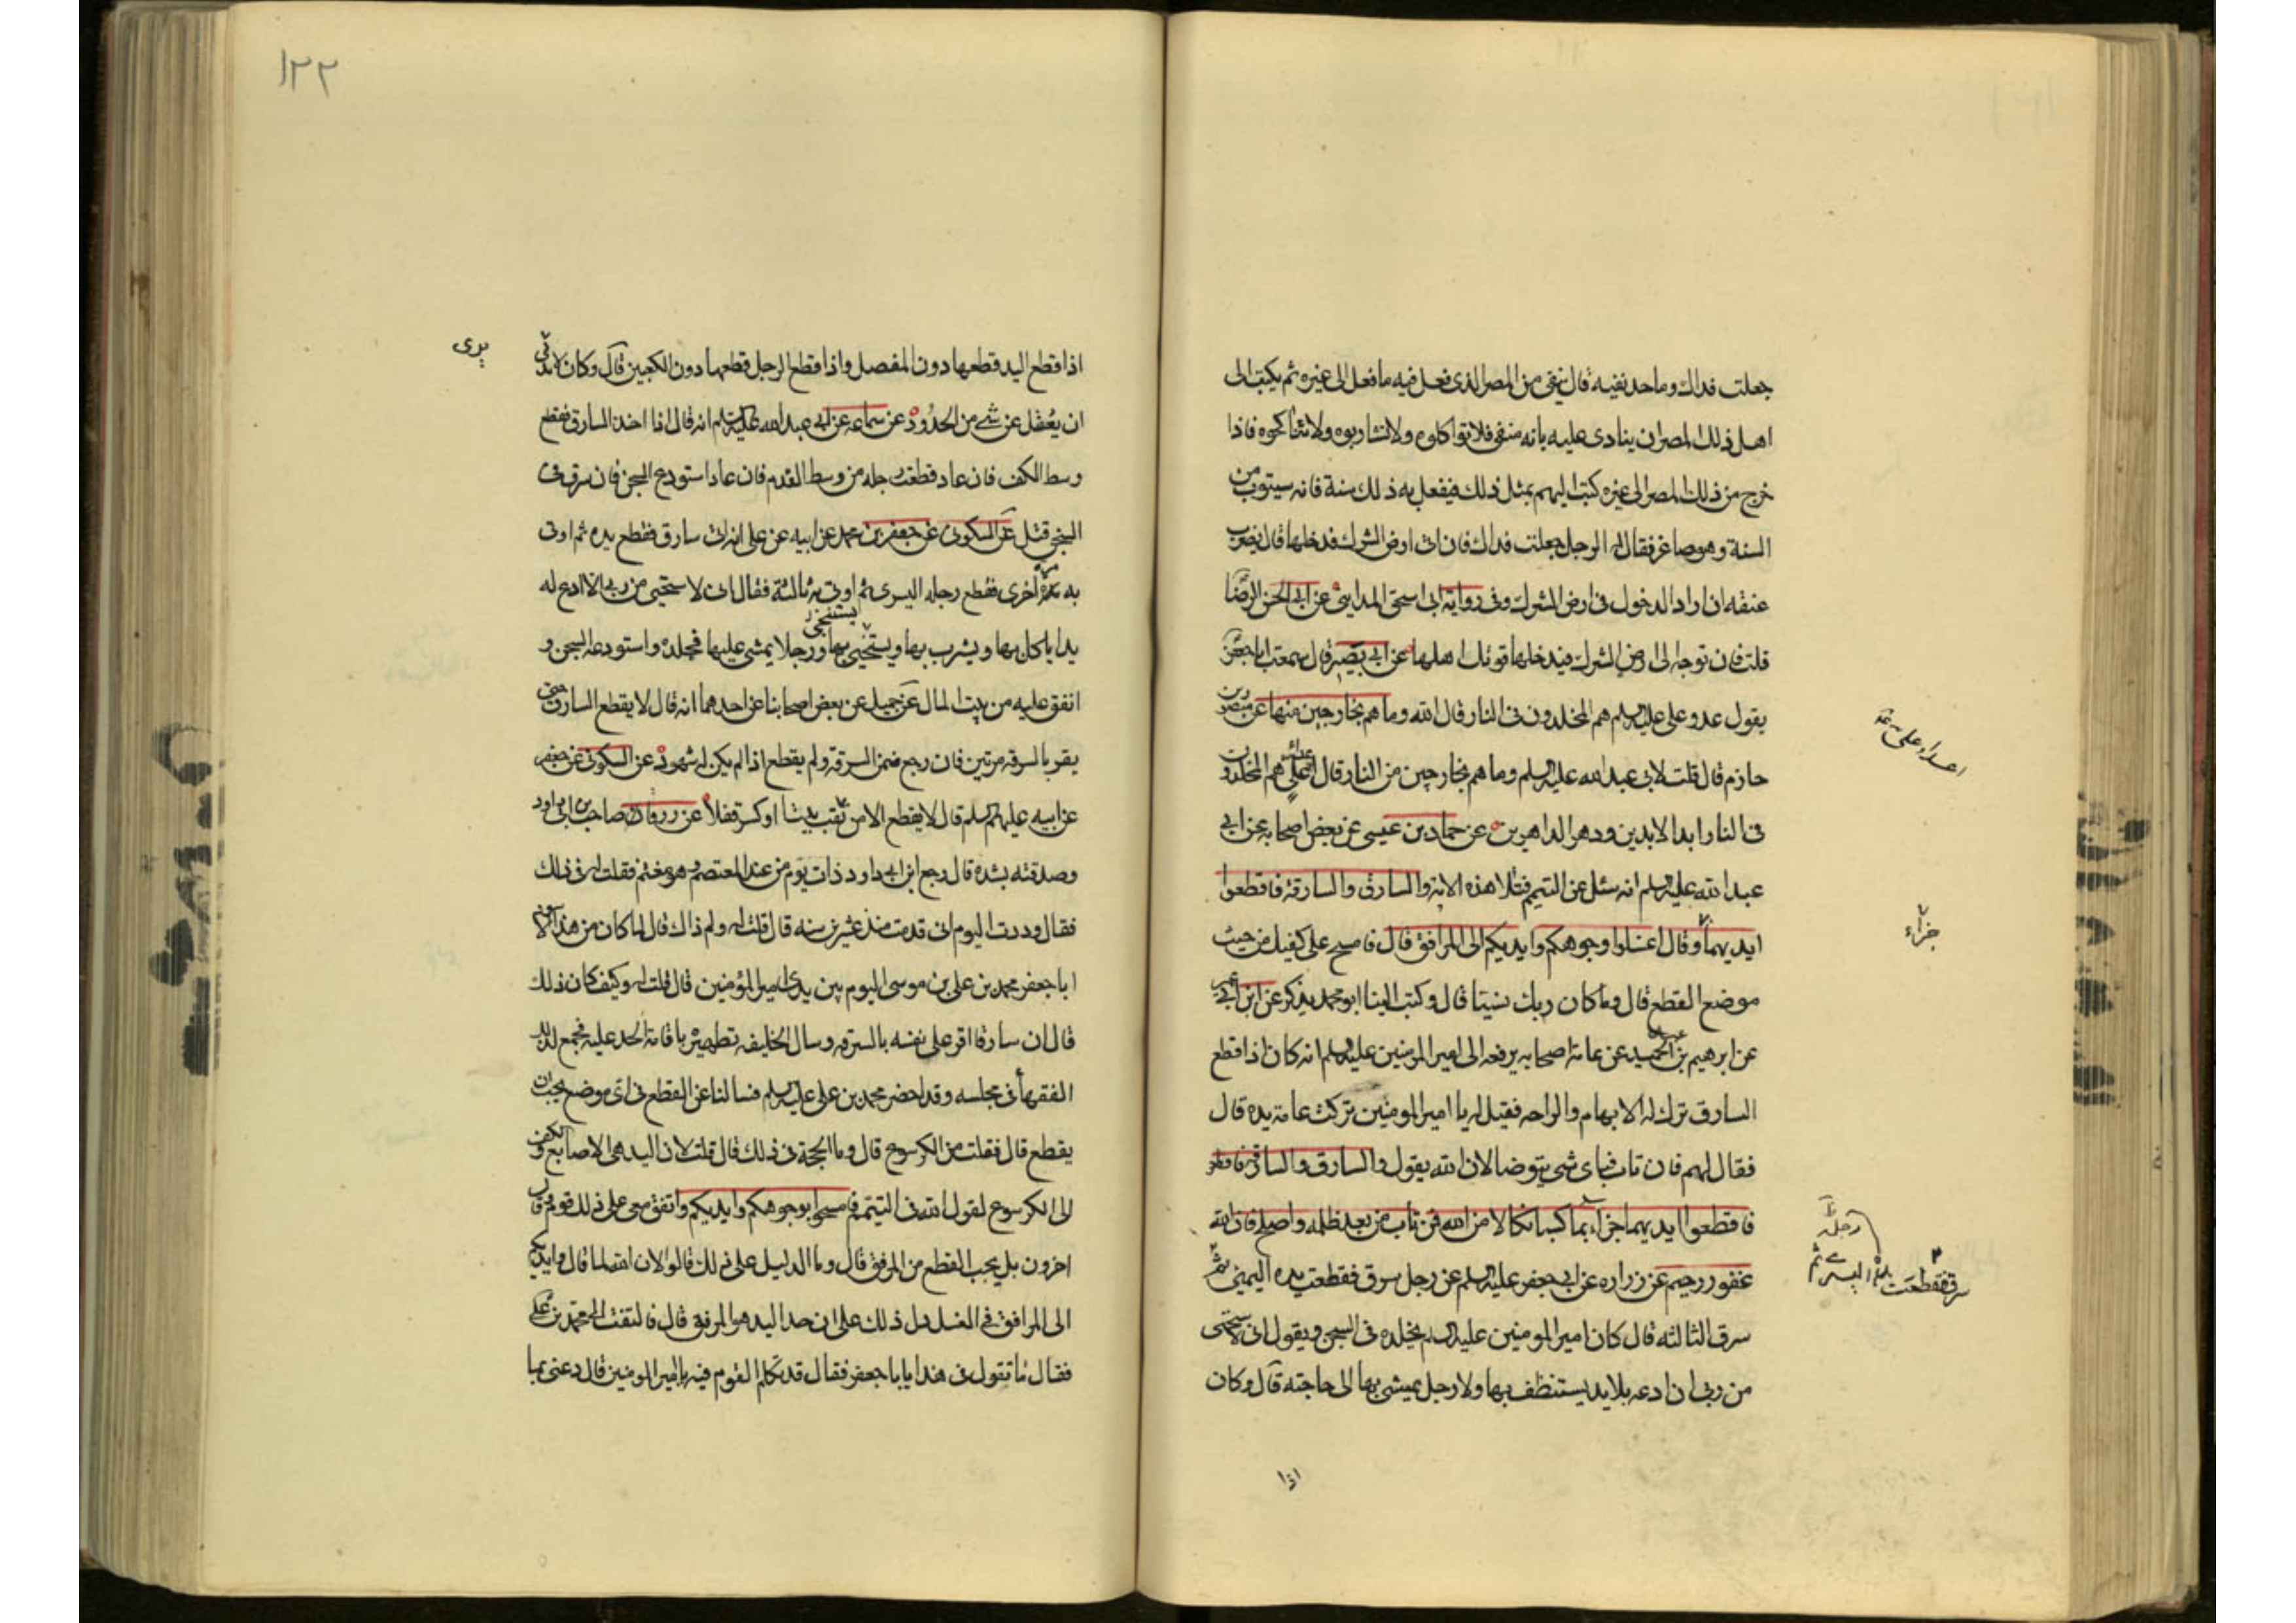 جعلت فداك وما حد نفيه قال ينفى من المصر الذى فعل فيه ما فعل الى غيره ثم يكتب الى
اهل ذلك المصر ان ينادى عليه بانه منفى فلا تواكلوه ولا تشاربوه ولا تناكحوه فاذا
خرج من ذلك المصر الى غيره كتب اليهم بمثل ذلك فيفعل به ذلك سنة فانه سيتوب من
السنة وهو صاغر فقال له الرجل جعلت فداك فان اتى ارض الشرك فدخلها قال يضرب
عنقه ان اراد الدخول فى ارض الشرك وفى رواية ابى اسحق المداينى عن ابى الحسن الرضا
قلت فان توجه الى ارض الشرك فيدخلها قوتل اهلها عن ابى بصير قال سمعت ابا جعفر
يقول عدو على عليه السلم هم المخلدون فى النار قال الله وما هم بخارجين منها عن منصور بن
حازم قال قلت لابى عبد الله عليه السلم وما هم بخارجين من النار قال اعداء على هم المخلدون
فى النار ابد الابدين ودهر الداهرين عن حماد بن عيسى عن بعض اصحابه عن ابى
عبد الله عليه السلم انه سئل عن التيمم فتلا هذه الاية والسارق والسارقة فاقطعوا
ايديهما وقال اغسلوا وجوهكم وايديكم الى المرافق قال فامسح على كفيك من حيث
موضع القطع قال وما كان ربك نسيا قال وكتب الينا ابو محمد يذكر عن ابن ابى عمير
عن ابرهيم بن عبد الحميد عن عامة اصحابه يرفعه الى امير المومنين عليه السلم انه كان اذا قطع
السارق ترك له الابهام والراحه فقيل له يا امير المومنين تركت عامة يده قال
فقال لهم فان تاب فباى شى يتوضا لان الله يقول والسارق والسارقة فاقطعوا
فاقطعوا ايديهما جزاء بما كسبا نكالا من الله فمن تاب من بعد ظلمه واصلح فان الله
غفور رحيم عن زراره عن ابى جعفر عليه السلم عن رجل سرق فقطعت يده اليمنى ثم
سرق الثالثه قال كان امير المومنين عليه السلم يخلده فى السجن ويقول انى لاستحى
من ربى ان ادعه بلا يد يستنظف بها ولا رجل يمشى بها الى حاجته قال وكان
اذا
اعداء على
جزاء
رجله
سرق فقطعت اليسرى ثم
١٢٢
يرى
اذا قطع اليد قطعها دون المفصل واذا قطع الرجل قطعها دون الكعبين قال وكان لا يرى
ان يغفل عن شى من الحدود عن سماعه عن ابى عبد الله عليه السلم انه قال اذا اخذ السارق فقطع
وسط الكف فان عاد قطعت رجله من وسط القدم فان عاد استودع السجن فان سرق فى
السجن قتل عن السكونى عن جعفر بن محمد عن ابيه عن على انه اتى سارق فقطع يده ثم اوتى
به مرة اخرى فقطع رجله اليسرى ثم اوتى به ثالثة فقال انى لاستحيى من ربى الا ادع له
يدا ياكل بها ويشرب بها ويستنجى بها ورجلا يمشى عليها فجلده واستودعه السجن و
انفق عليه من بيت المال عن جميل عن بعض اصحابنا عن احدهما انه قال لا يقطع السارق حتى
يقر بالسرقه مرتين فان رجع ضمن السرقة ولم يقطع اذا لم يكن له شهود عن السكونى عن جعفر
عن ابيه عليهم السلم قال لا يقطع الا من نقب بيتا او كسر قفلا عن زرقان صاحب ابن ابى داود
وصديقه بشده قال رجع ابن ابى داود ذات يوم من عند المعتصم وهو مغتم فقلت له فى ذلك
فقال وددت اليوم انى قدمت منذ عشرين سنه قال قلت له ولم ذاك قال لما كان من هذا الاسود
ابا جعفر محمد بن على بن موسى اليوم بين يدى امير المؤمنين قال قلت له وكيف كان ذلك
قال ان سارقا اقر على نفسه بالسرقه وسال الخليفه تطهيره باقامة الحد عليه فجمع لذلك
الفقهأ فى مجلسه وقد احضر محمد بن على عليه السلم فسالنا عن القطع فى اى موضع يجب ان
يقطع قال فقلت من الكرسوع قال وما الحجة فى ذلك قال قلت لان اليد هى الاصابع والكف
الى الكرسوع لقول الله فى التيمم فامسحوا بوجوهكم وايديكم واتفق معى على ذلك قوم وقال
اخرون بل يجب القطع من المرفق قال وما الدليل على ذلك قالوا لان الله لما قال وايديكم
الى المرافق فى الغسل دل ذلك على ان حد اليد هو المرفق قال فالتفت الى محمد بن على
فقال ما تقول فى هذا يا با جعفر فقال قد تكلم القوم فيه يا امير المومنين قال دعنى بما